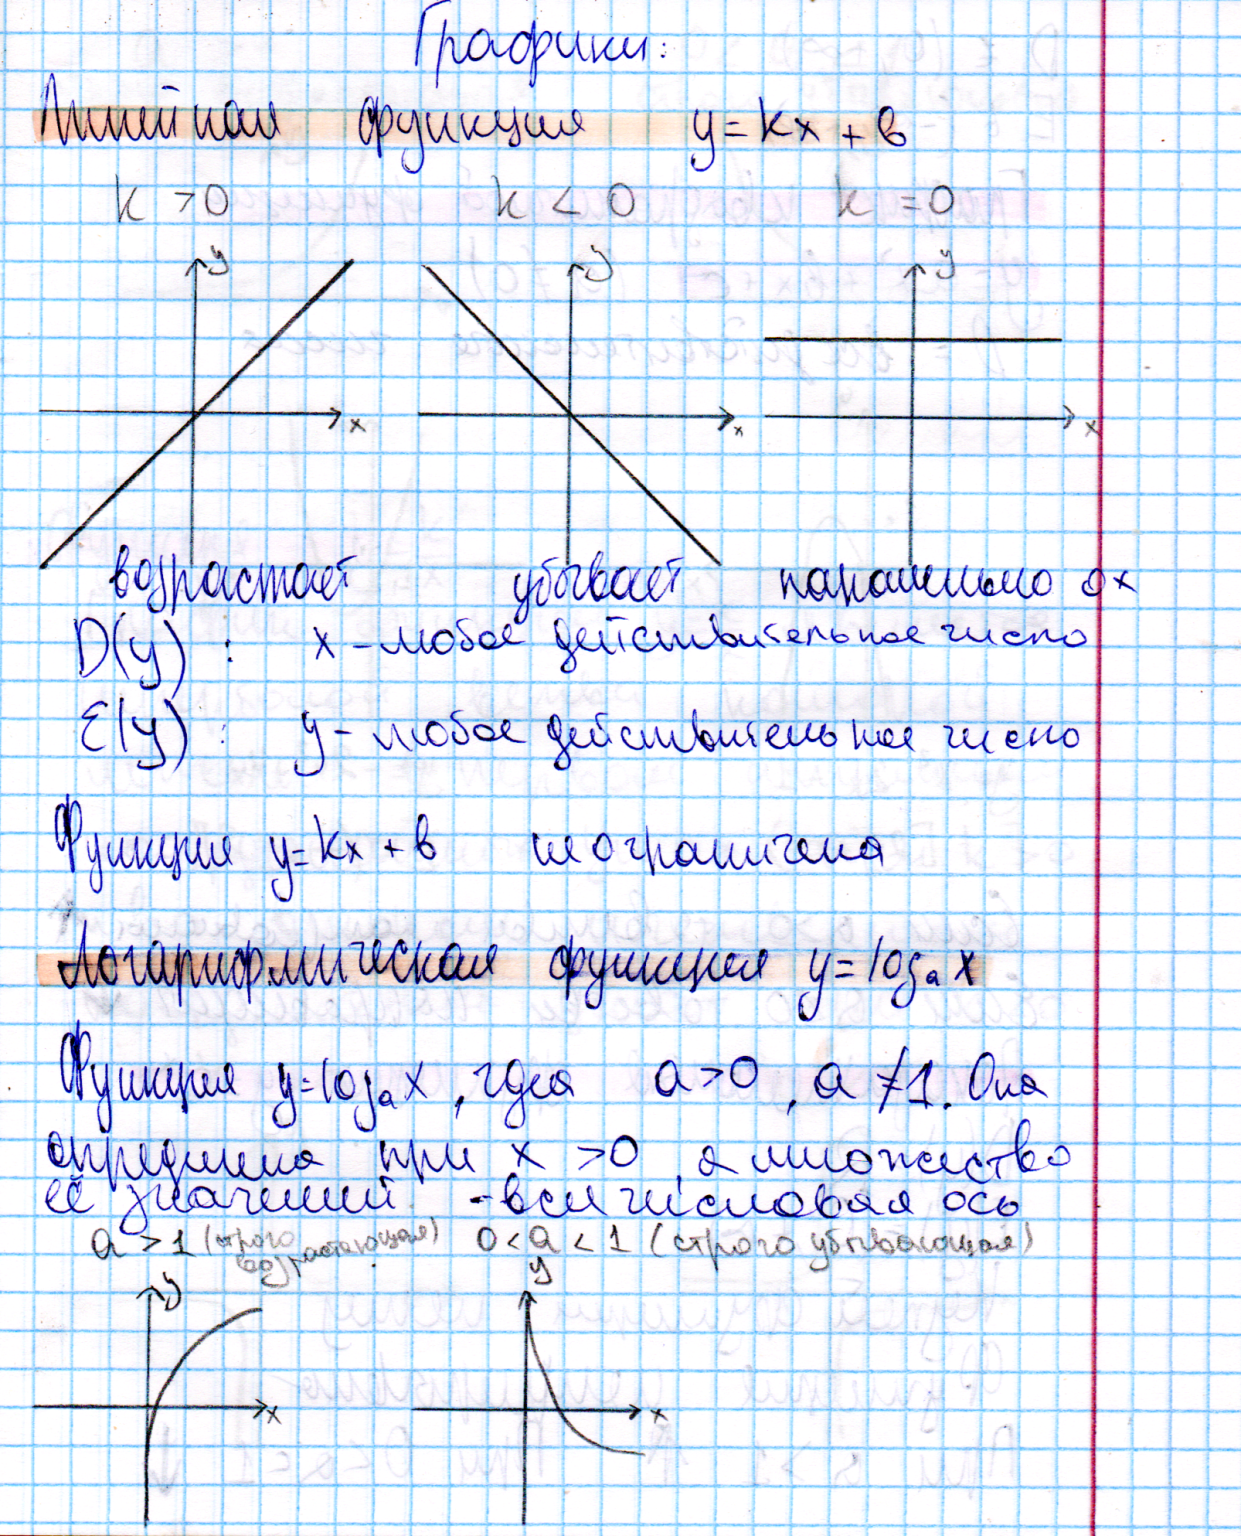 Графики:
Линейная функция y=kx+b
k>0 k<0 k=0
y y y
x x x
возрастает убывает параллельно ox
D(y) : x - любое действительное число
E(y) : y - любое действительное число
Функция y=kx+b неограничена
Логарифмическая функция y=logₐx
Функция y=logₐx, где a>0, a≠1. Она
определена при x>0, а множество
её значений - вся числовая ось
a>1 (строго возрастающая) 0<a<1 (строго убывающая)
y y
x x